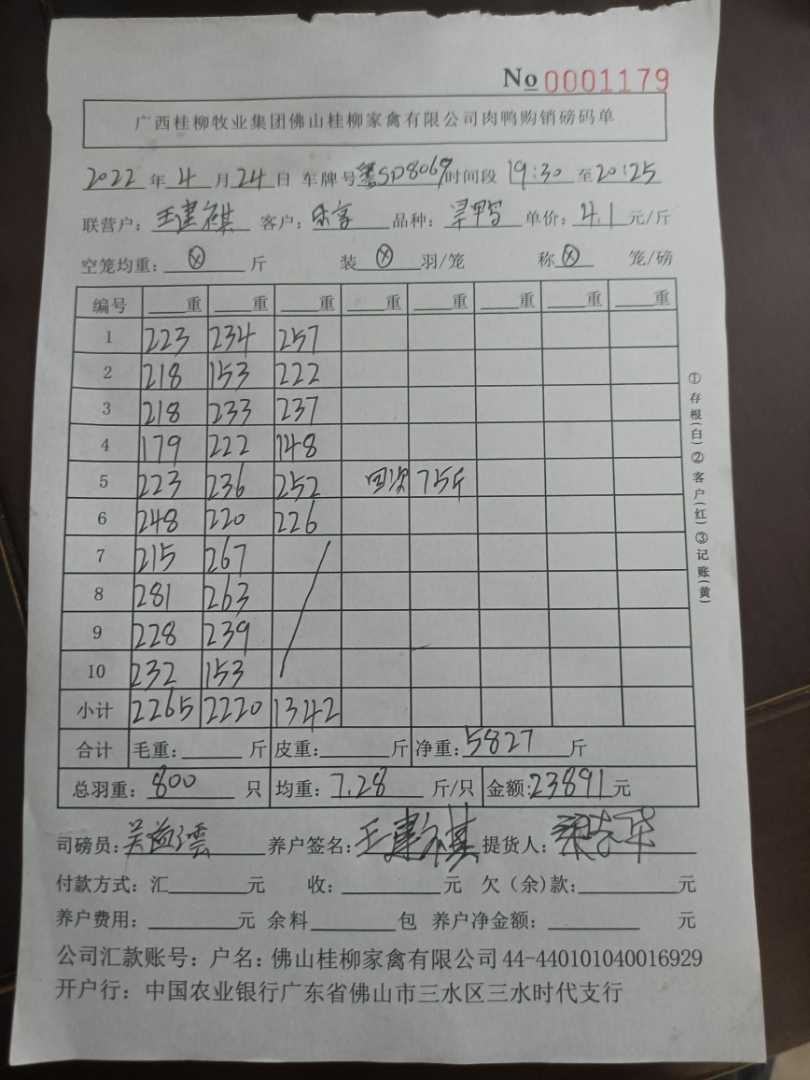 No 0001179
广西桂柳牧业集团佛山桂柳家禽有限公司肉鸭购销磅码单
2022 年 4 月 24 日 车牌号 粤SD8069 时间段 19:30 至 20:25
联营户: 王建祺 客户: 品种: 旱鸭 单价: 4.1 元/斤
空笼均重: ⊗ 斤 装 ⊗ 羽/笼 称 ⊗ 笼/磅
编号 重 重 重 重 重 重 重 重
1 223 234 257
2 218 153 222
3 218 233 237
4 179 222 148
5 223 236 252 回次 75斤
6 248 220 226
7 215 267
8 281 263
9 228 239
10 232 153
小计 2265 2220 1342
合计 毛重: 斤 皮重: 斤 净重: 5827 斤
总羽重: 800 只 均重: 7.28 斤/只 金额: 23891 元
司磅员: 吴益 养户签名: 王建祺 提货人: 梁
付款方式: 汇 元 收: 元 欠(余)款: 元
养户费用: 元 余料 包 养户净金额: 元
公司汇款账号: 户名: 佛山桂柳家禽有限公司 44-440101040016929
开户行: 中国农业银行广东省佛山市三水区三水时代支行
①存根(白)②客户(红)③记账(黄)